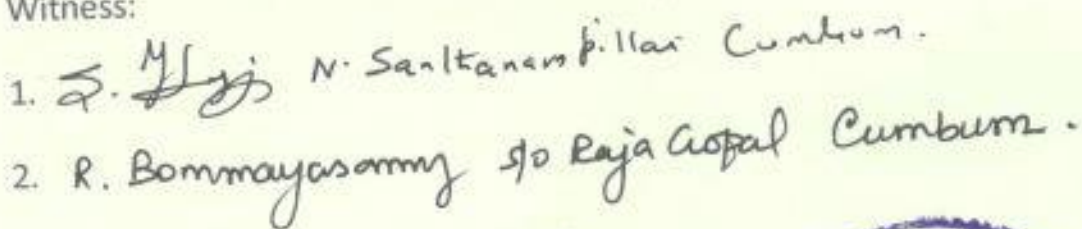 Witness:
1. S. N. Santhanam pillai Cumbum.
2. R. Bommayasamy s/o Raja Gopal Cumbum.